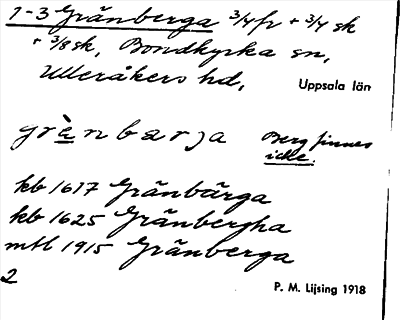 1-3 Gränberga 3/4 fr + 3/4 sk
+ 3/8 sk, Bondkyrka sn,
Ulleråkers hd,
Uppsala län
grànbarja
Berg finnes
icke.
kb 1617 Gränbärga
kb 1625 Gränbergha
mtl 1915 Gränberga
2
P. M. Lijsing 1918